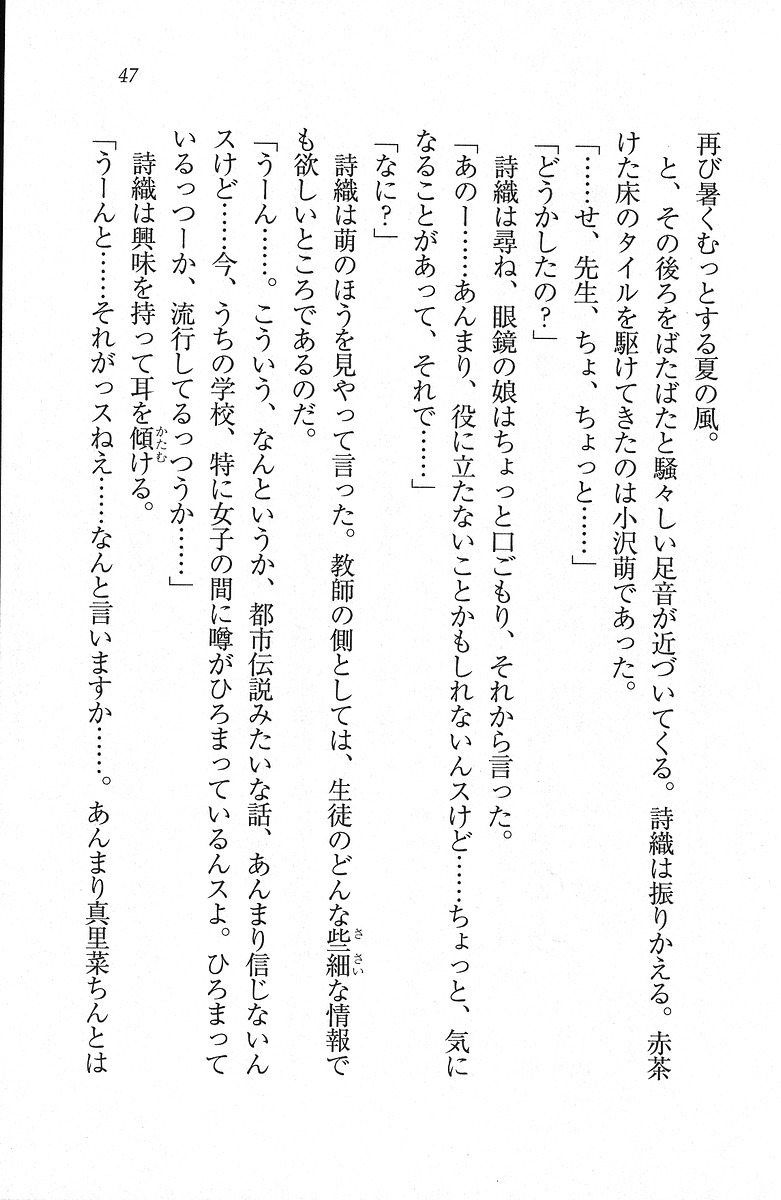 47
再び暑くむっとする夏の風。
と、その後ろをばたばたと騒々しい足音が近づいてくる。詩織は振りかえる。赤茶
けた床のタイルを駆けてきたのは小沢萌であった。
「……せ、先生、ちょ、ちょっと……」
「どうかしたの？」
詩織は尋ね、眼鏡の娘はちょっと口ごもり、それから言った。
「あのー……あんまり、役に立たないことかもしれないんスけど……ちょっと、気に
なることがあって、それで……」
「なに？」
詩織は萌のほうを見やって言った。教師の側としては、生徒のどんな些細な情報で
も欲しいところであるのだ。
「うーん……。こういう、なんというか、都市伝説みたいな話、あんまり信じないん
スけど……今、うちの学校、特に女子の間に噂がひろまっているんスよ。ひろまって
いるっつーか、流行してるっつうか……」
詩織は興味を持って耳を傾ける。
「うーんと……それがっスねえ……なんと言いますか……。あんまり真里菜ちんとは